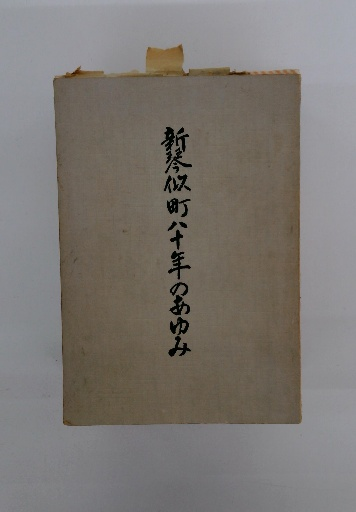 新琴似町八十年のあゆみ